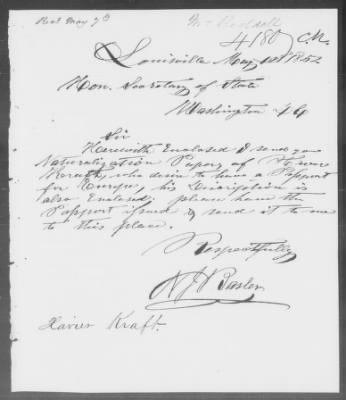 Recd May 7th
4180 C.M.
Louisville May 1st 1852
Hon. Secretary of State
Washington City
Sir
Herewith Enclosed I send you
Naturalization Papers of
who desire to have a Pasport
for Europe, his Discription is
also Enclosed. please have the
Pasport issued & send it to me
to this place.
Respectfully
Xavier Kraft.